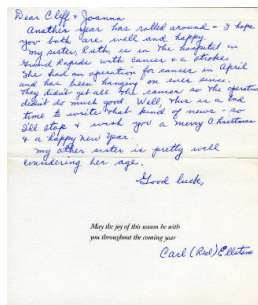 Dear Cliff & Joanna
Another year has rolled around - I hope
you both are well and happy.
my sister, Ruth, is in the hospital in
Grand Rapids with cancer & a stroke.
She had an operation for cancer in April
and has been hanging on ever since.
They didn't get all the cancer so the operation
didn't do much good. Well, this is a bad
time to write that kind of news - so
I'll stop & wish you a merry Christmas
& a happy new year.
my other sister is pretty well
considering her age.
Good luck,
May the joy of this season be with
you throughout the coming year
Carl (Red) Ellstone